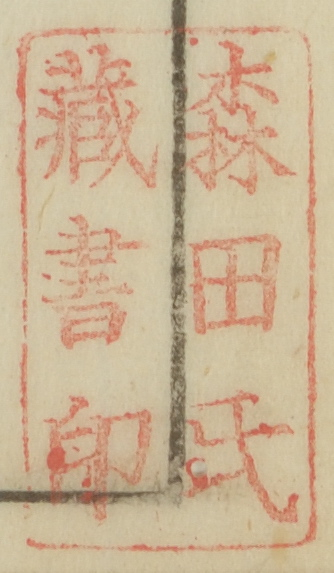 森田氏
藏書印